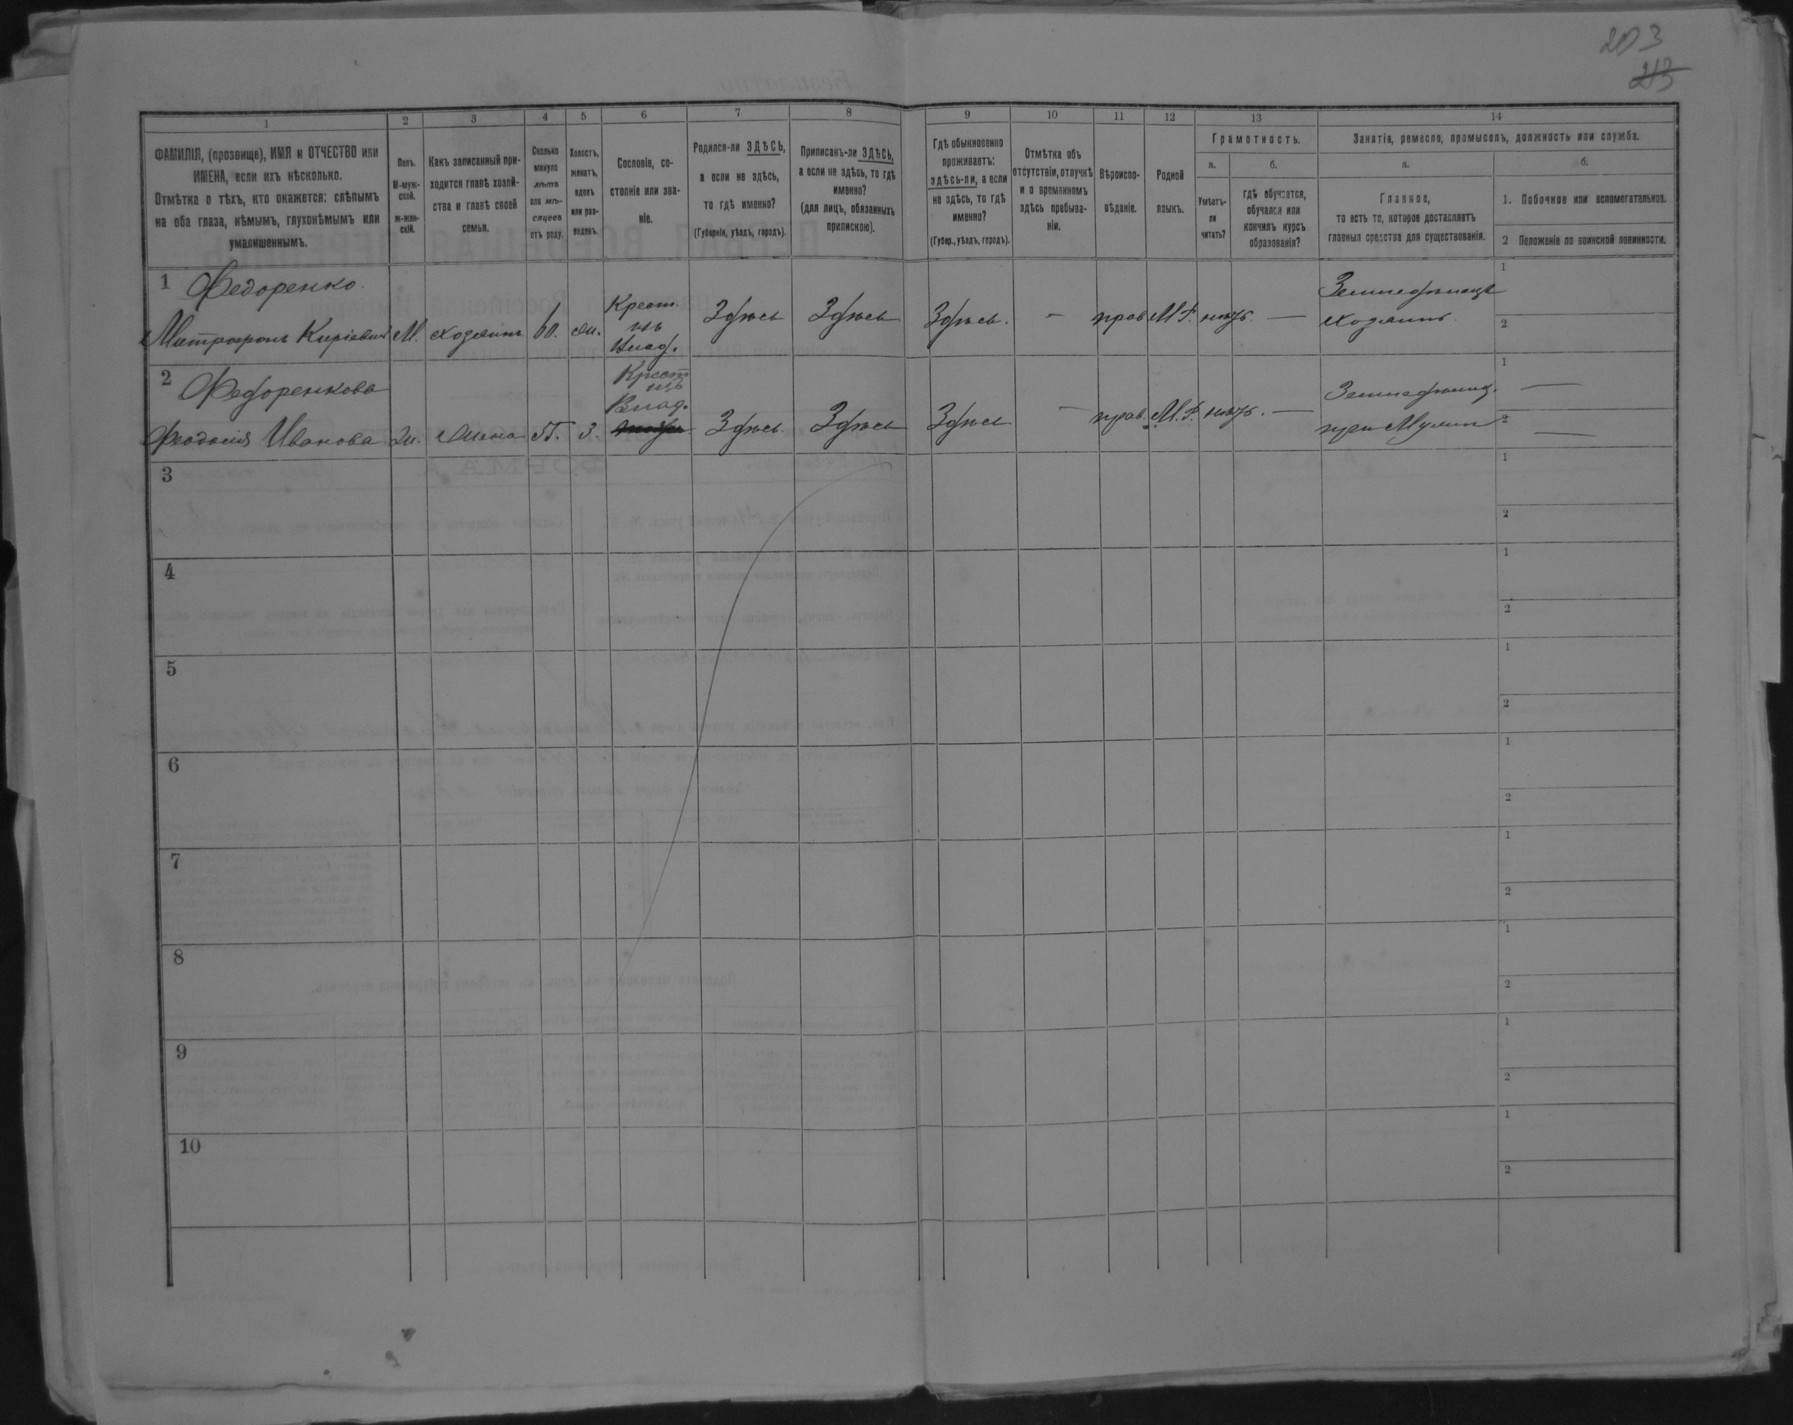 203
213
1 2 3 4 5 6 7 8 9 10 11 12 13 14
ФАМИЛІЯ, (прозвище), ИМЯ и ОТЧЕСТВО или
ИМЕНА, если ихъ нѣсколько.
Отмѣтка о тѣхъ, кто окажется: слѣпымъ
на оба глаза, нѣмымъ, глухонѣмымъ или
умалишеннымъ.
Полъ.
М-муж-
ской.
ж-жен-
скій.
Какъ записанный при-
ходится главѣ хозяй-
ства и главѣ своей
семьи.
Сколько
минуло
лѣтъ
или мѣ-
сяцевъ
отъ роду.
Холостъ,
женатъ,
вдовъ
или раз-
веденъ.
Сословіе, со-
стояніе или зва-
ніе.
Родился-ли ЗДѢСЬ,
а если не здѣсь,
то гдѣ именно?
(Губернія, уѣздъ, городъ).
Приписанъ-ли ЗДѢСЬ,
а если не здѣсь, то гдѣ
именно?
(для лицъ, обязанныхъ
припискою).
Гдѣ обыкновенно
проживаетъ:
здѣсь-ли, а если
не здѣсь, то гдѣ
именно?
(Губер., уѣздъ, городъ).
Отмѣтка объ
отсутствіи, отлучкѣ
и о временномъ
здѣсь пребыва-
ніи.
Вѣроиспо-
вѣданіе.
Родной
языкъ.
Грамотность.
а.
Умѣетъ-
ли
читать?
б.
гдѣ обучается,
обучался или
кончилъ курсъ
образованія?
Занятія, ремесло, промыселъ, должность или служба.
а.
Главное,
то есть то, которое доставляетъ
главныя средства для существованія.
б.
1. Побочное или вспомогательное.
2 Положеніе по воинской повинности.
1 Федоренко.
Митрофонъ Киріевич М. хозяинъ 60. ж. Крест. изъ Влад. Здѣсь Здѣсь Здѣсь. — прав. М.Р. нѣтъ. — Земледѣлецъ хозяинъ 1 2
2 Федоренкова
Феодосия Иванова ж. жена 55. з. Крест изъ Влад. Здѣсь Здѣсь Здѣсь — прав. М.Р. нѣтъ. — Земледѣлец. при Мужи 1 — 2 —
3 1 2
4 1 2
5 1 2
6 1 2
7 1 2
8 1 2
9 1 2
10 1 2